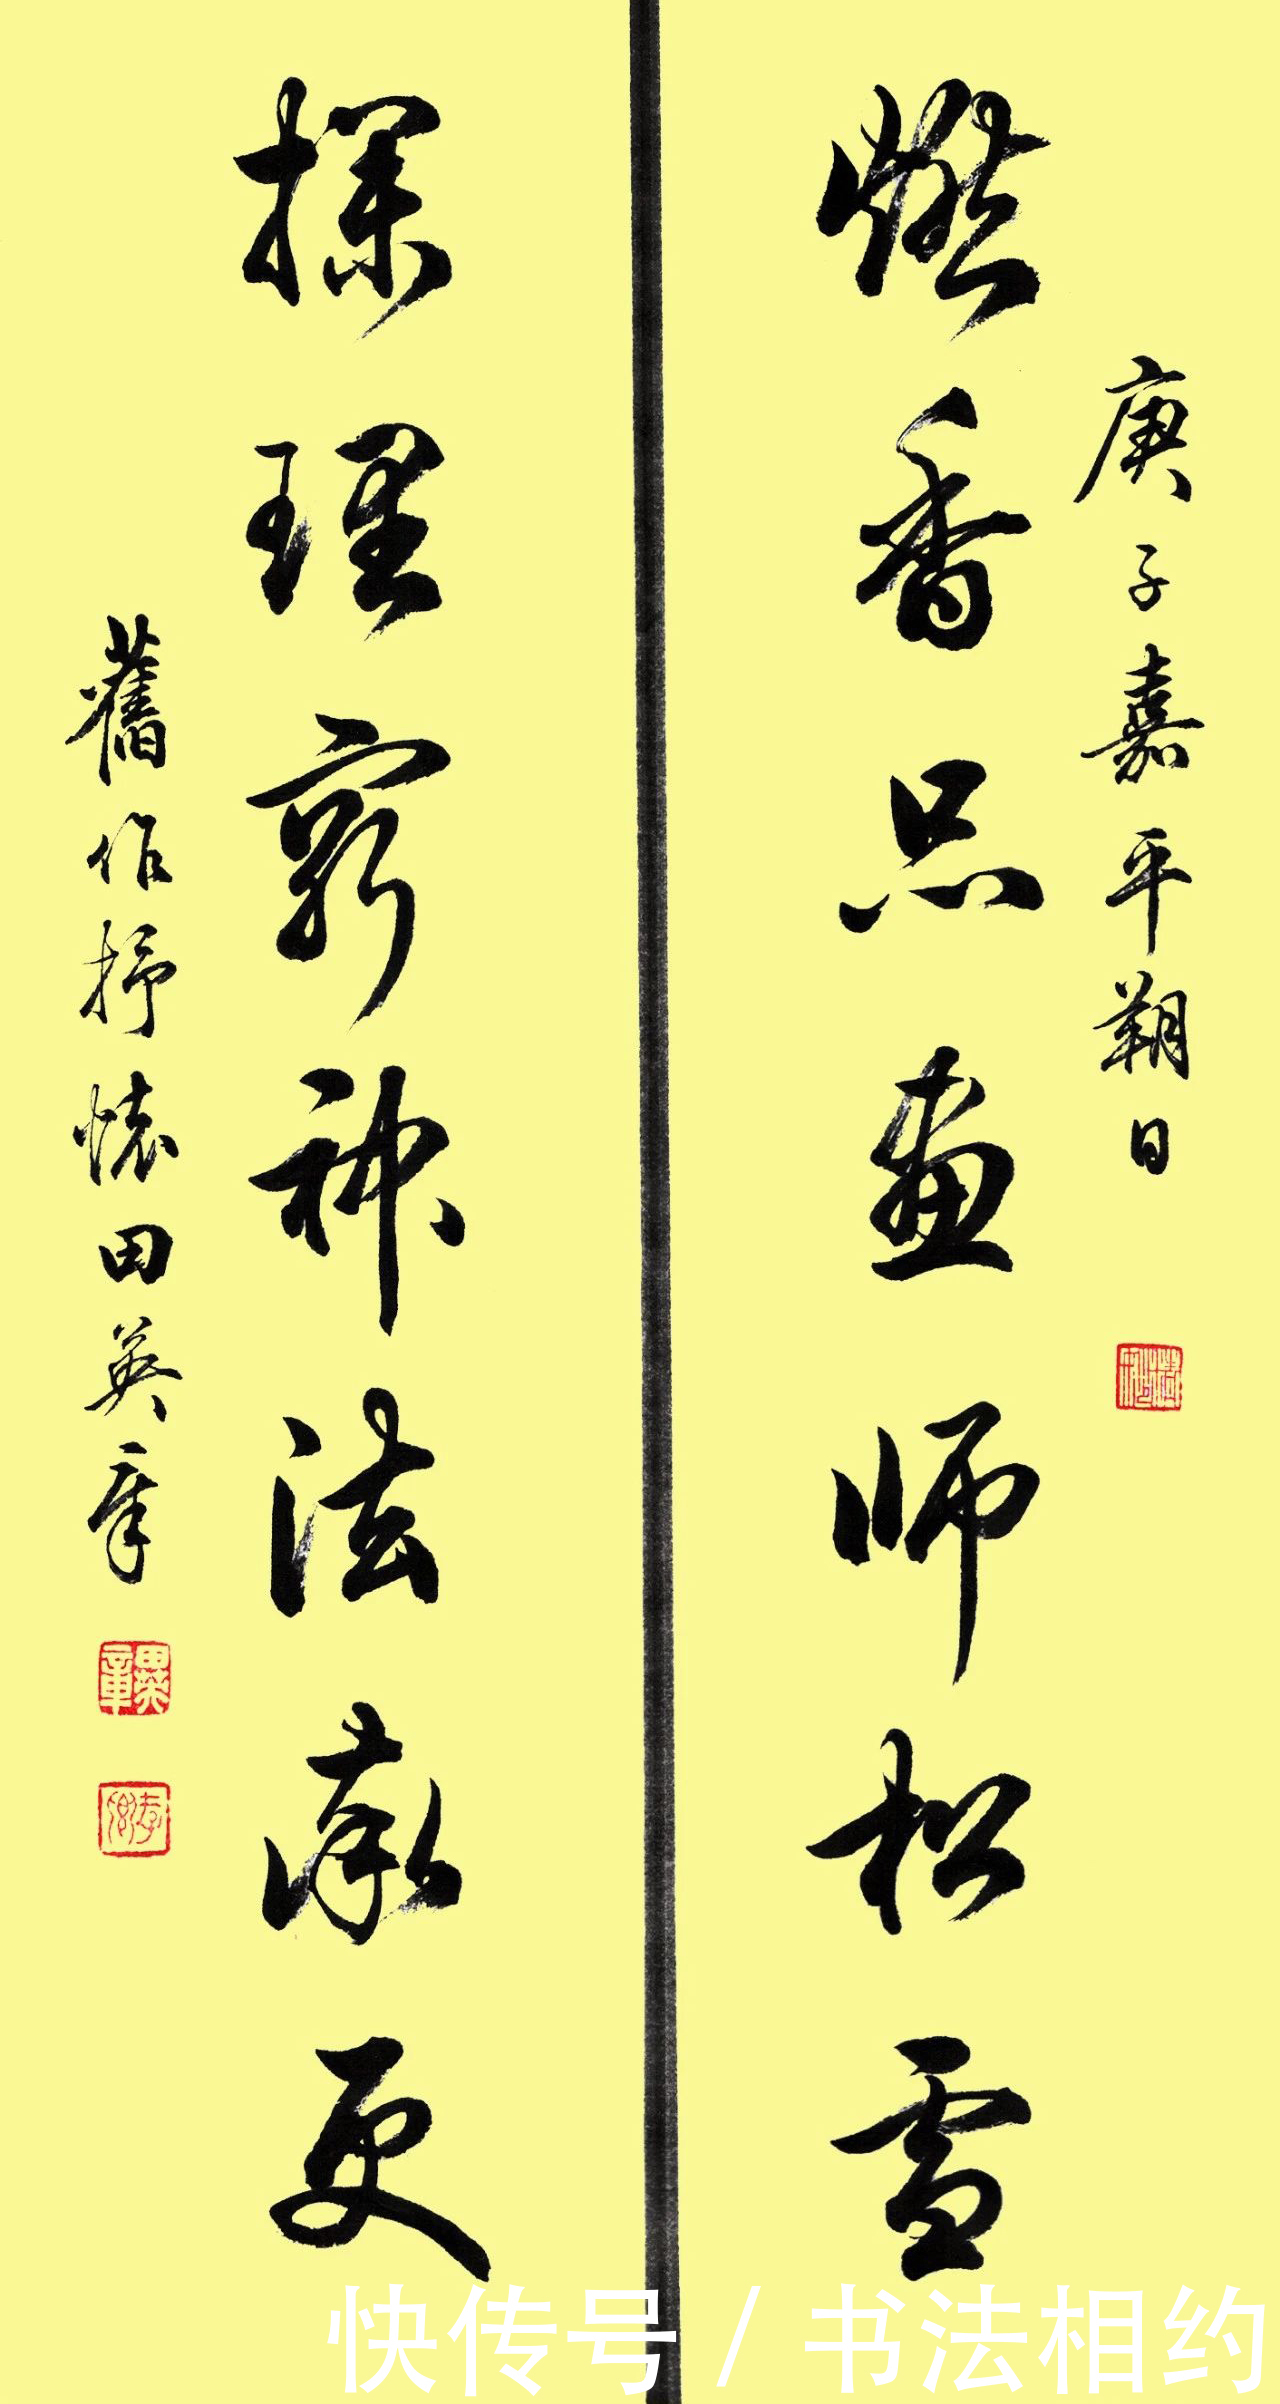 庚子嘉平朔日
燃香品畫师松雪
探理窮神法率更
舊作抒懷田英章
快传号 / 书法相约